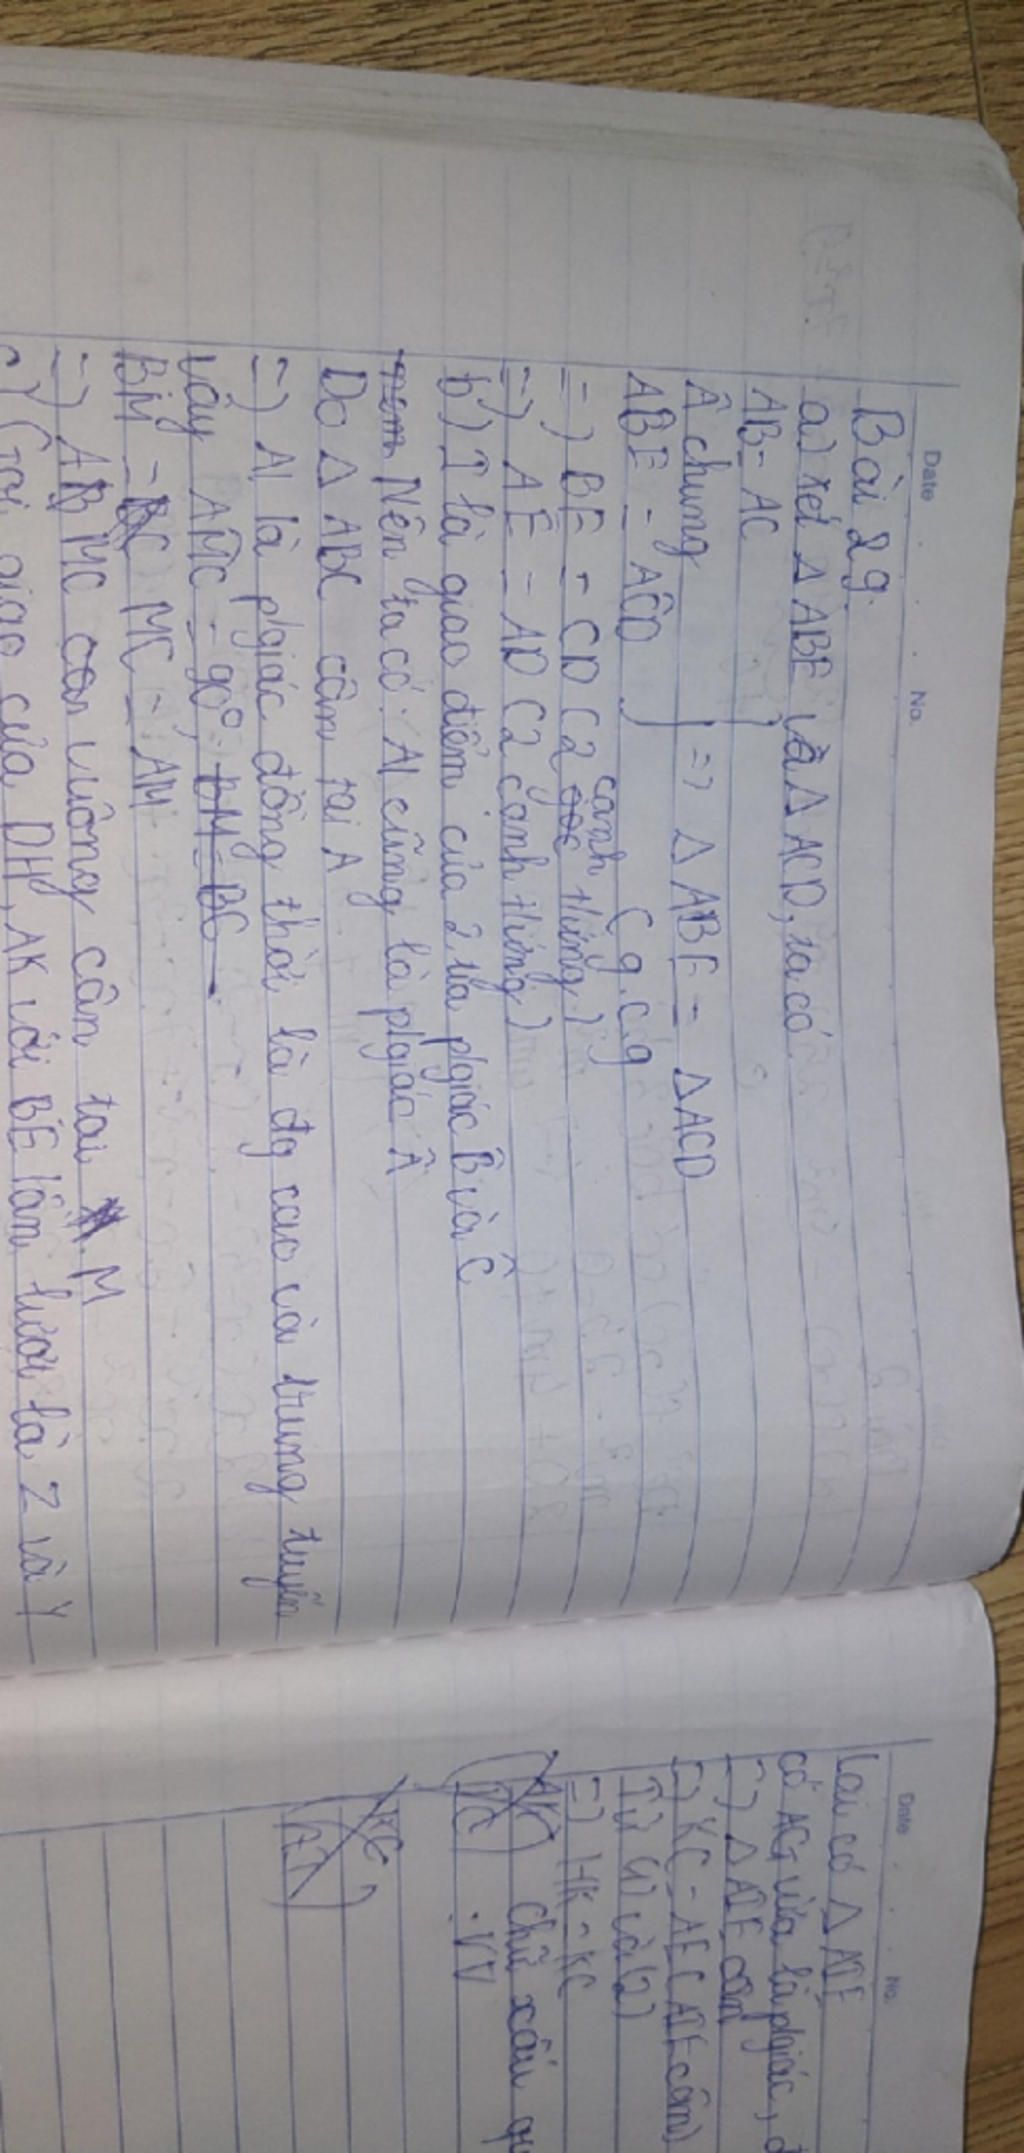 Date No.
Bài 29.
a) xét Δ ABE và Δ ACD, ta có
AB = AC
Â chung
ABE = ACD } => Δ ABE = Δ ACD
(g.c.g
=) BE = CD (2 cạnh tứng)
=) AE = AD (2 cạnh tứng)
b) I là giao điểm của 2 tia p/giác B̂ và Ĉ
Nên ta có: AI cũng là p/giác Â
Do Δ ABC cân tại A
=) AI là p/giác đồng thời là đg cao và trung tuyến
Vậy AMC = 90°; BM = BC
BM = MC = AM
=) ABMC vuông cân tại M
c) Gọi giao của DH, AK với BE lần lượt là Z và Y
Date No.
Lại có Δ AIE
có AG vừa là p/giác,
=) Δ AIE cân
=) KC = AE (AIE cân)
Từ (1) và (2)
=) HK = KC
chữ xấu
:VV